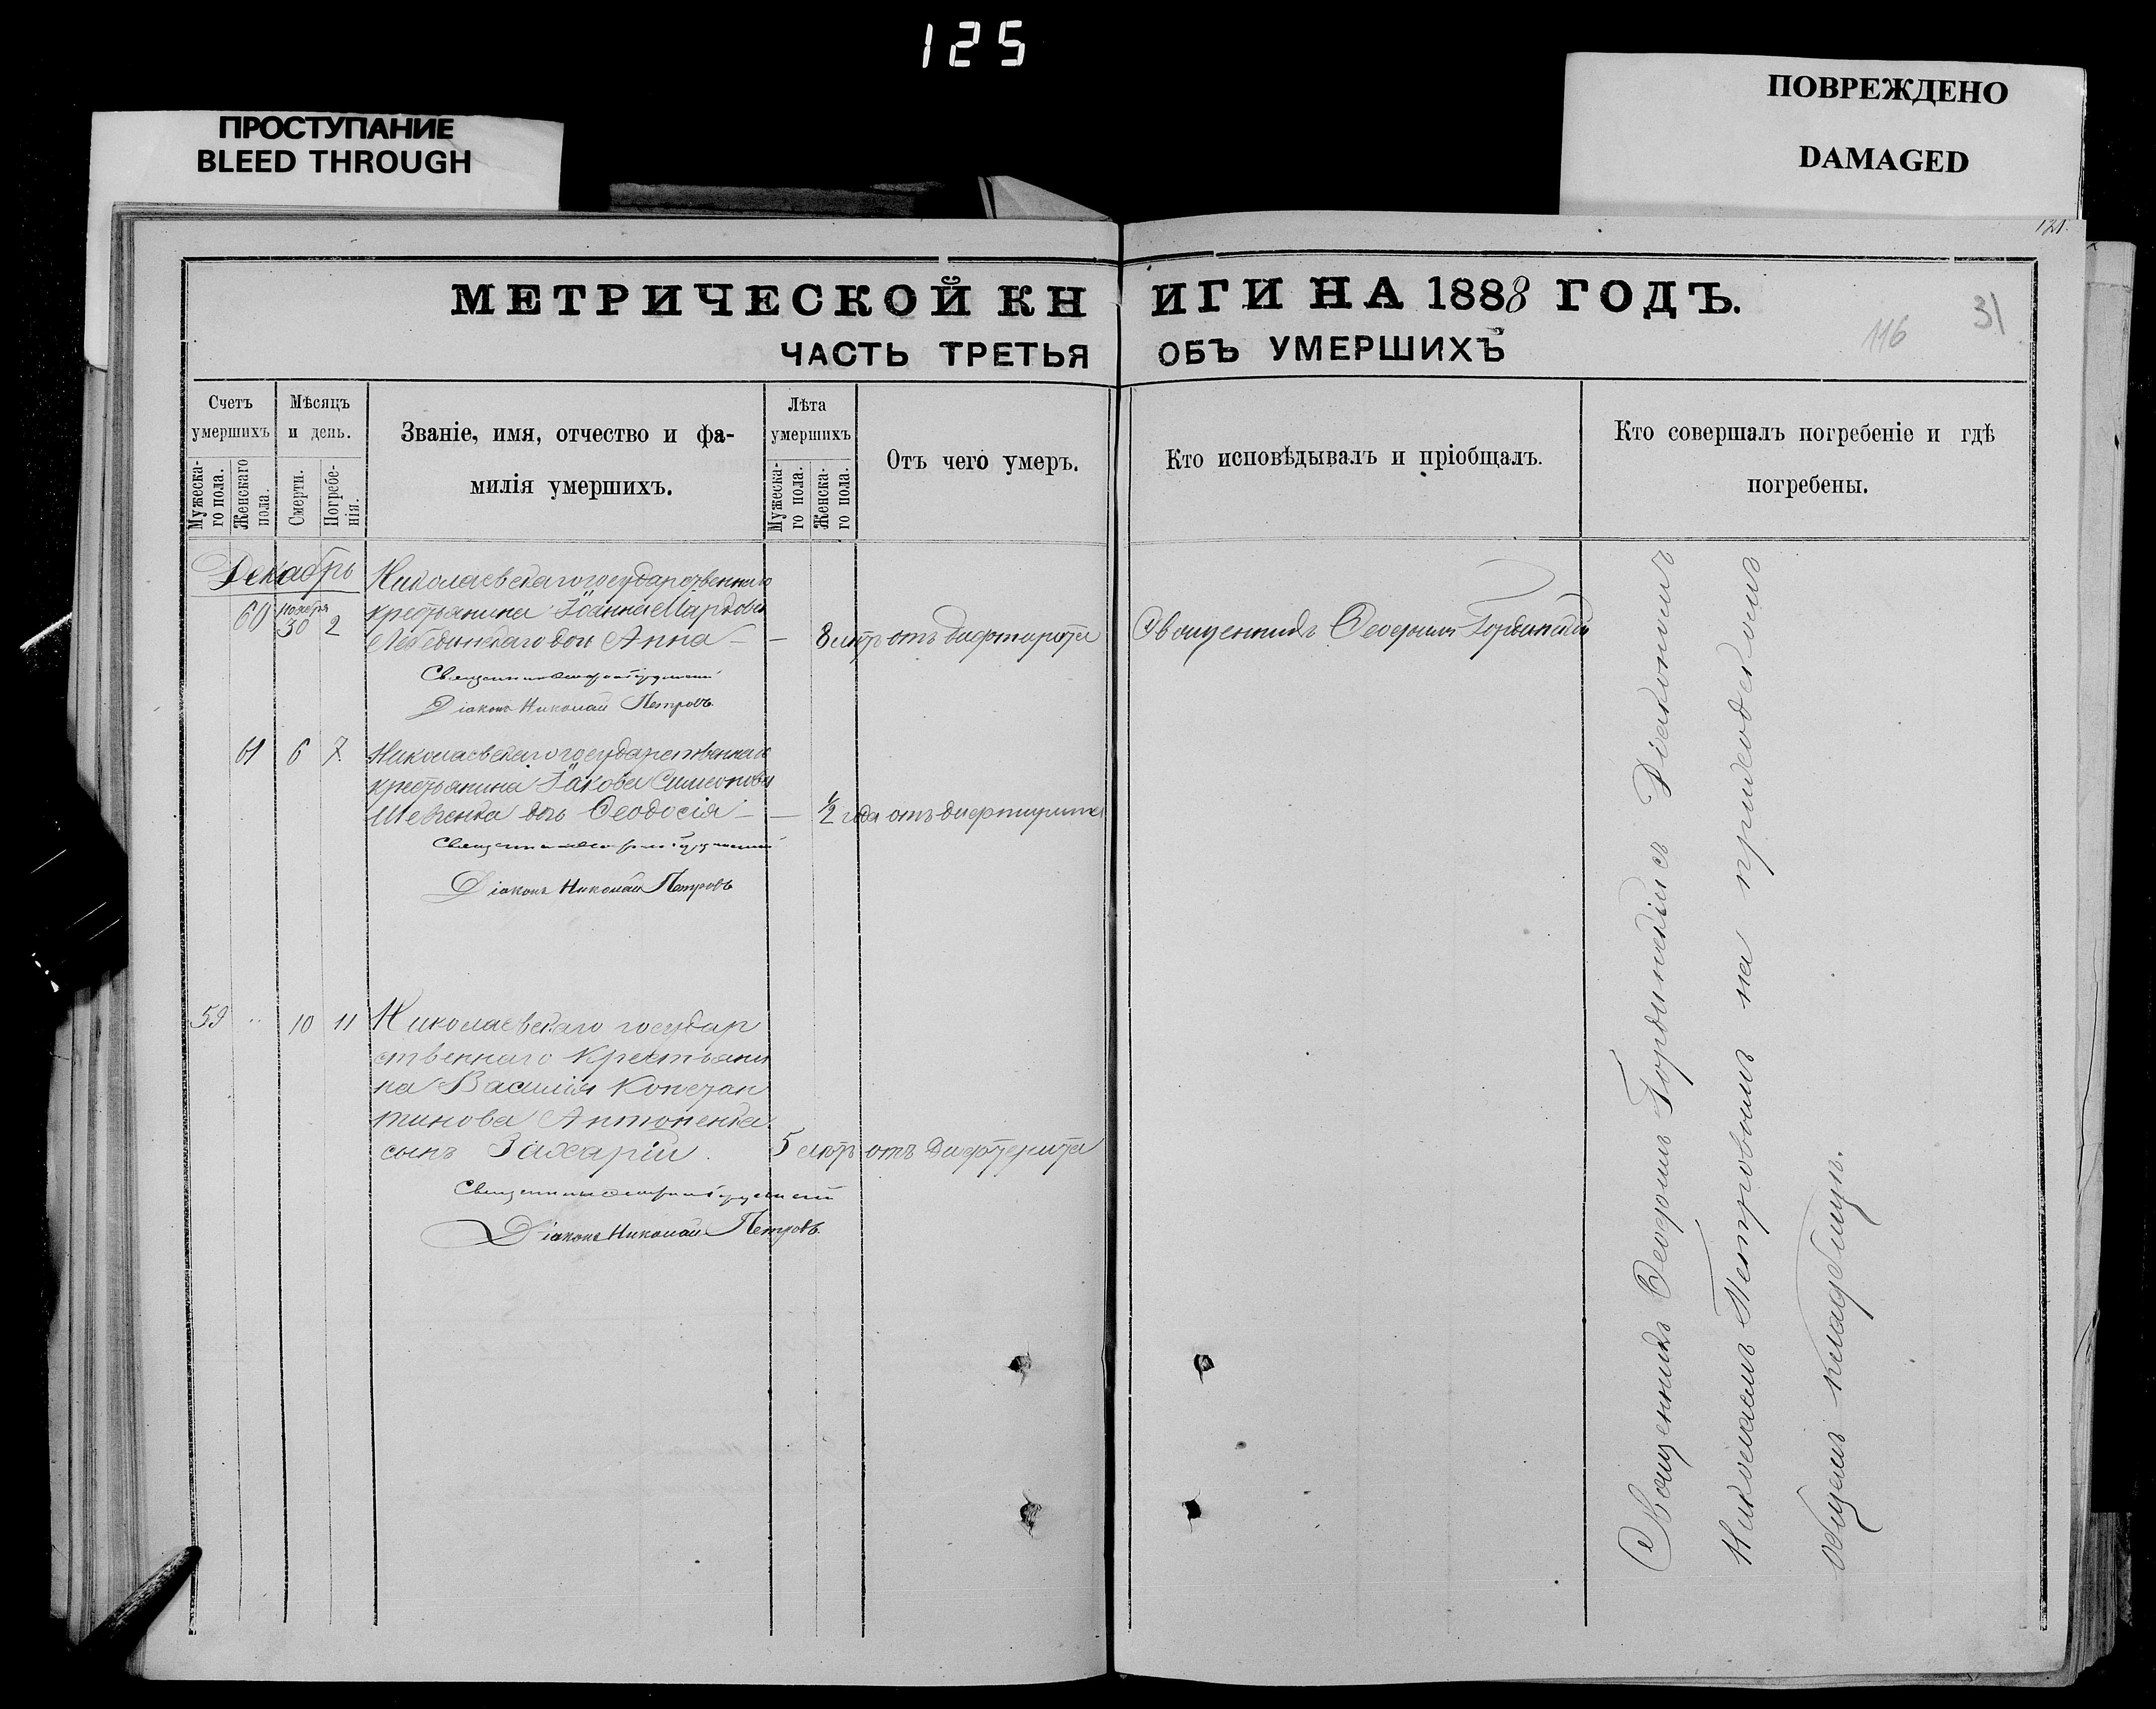 125
ПРОСТУПАНИЕ
BLEED THROUGH
ПОВРЕЖДЕНО
DAMAGED
121.
МЕТРИЧЕСКОЙ КН ИГИ НА 1888 ГОДЪ.
31
116
ЧАСТЬ ТРЕТЬЯ ОБЪ УМЕРШИХЪ
Счетъ умершихъ
Мужеска-го пола.
Женскаго пола.
Мѣсяцъ и день.
Смерти.
Погребе-нія.
Званіе, имя, отчество и фа-
милія умершихъ.
Лѣта умершихъ
Мужеска-го пола.
Женска-го пола.
Отъ чего умеръ.
Кто исповѣдывалъ и пріобщалъ.
Кто совершалъ погребеніе и гдѣ
погребены.
Декабрь
60 ноября 30 2
Николаевскаго государственнаго
крестьянина Іоанна Маркова
Лебединскаго дочь Анна — — 8 лѣтъ отъ дифтирита
Священникъ Ѳеофилъ Гордынскій
Діаконъ Николай Петровъ
61 6 7 Николаевскаго государственнаго
крестьянина Іакова Симеонова
Шевченка дочь Ѳеодосія — — ½ года отъ дифтирита
Діаконъ Николай Петровъ
59 " 10 11 Николаевскаго государ
ственнаго крестьяни
на Василія Констан
тинова Антоненка
сынъ Захарій. 5 лѣтъ отъ дифтерита
Діаконъ Николай Петровъ.
Священникъ Гордынскимъ съ Діакономъ
Николаемъ Петровымъ на приходскомъ
общемъ кладбищѣ.